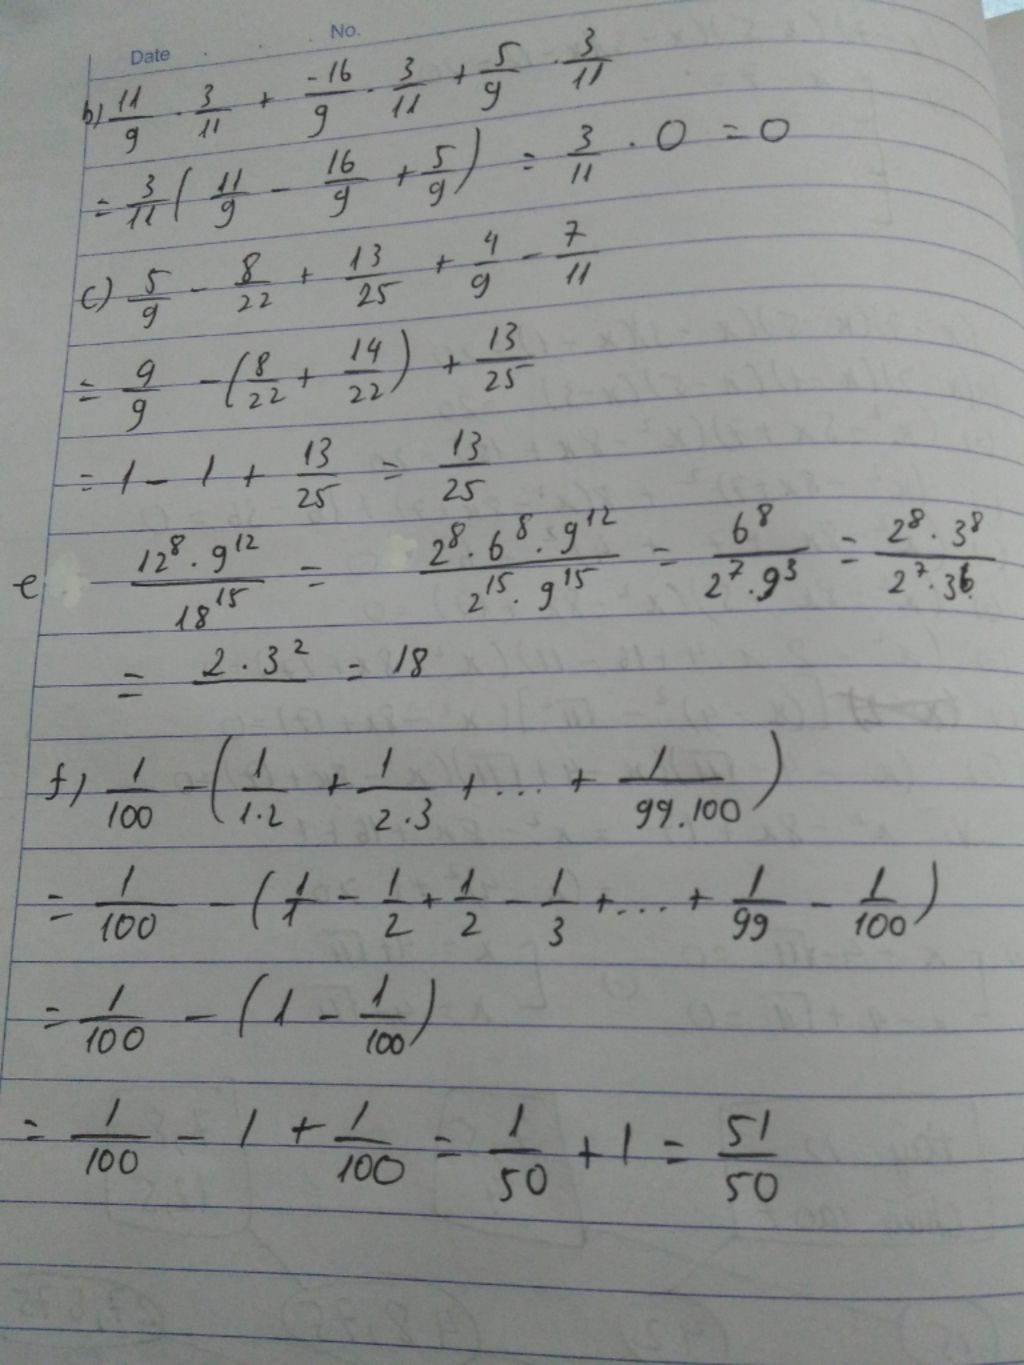 Date . . No.
b) 11/9 · 3/11 + -16/9 · 3/11 + 5/9 · 3/11
= 3/11 ( 11/9 - 16/9 + 5/9 ) = 3/11 · 0 = 0
c) 5/9 - 8/22 + 13/25 + 4/9 - 7/11
= 9/9 - ( 8/22 + 14/22 ) + 13/25
= 1 - 1 + 13/25 = 13/25
e (12^8 · 9^12)/(18^15) = (2^8 · 6^8 · 9^12)/(2^15 · 9^15) = (6^8)/(2^7 · 9^3) = (2^8 · 3^8)/(2^7 · 3^6)
= 2 · 3^2 = 18
f) 1/100 - ( 1/1.2 + 1/2.3 + ... + 1/99.100 )
= 1/100 - ( 1/1 - 1/2 + 1/2 - 1/3 + ... + 1/99 - 1/100 )
= 1/100 - ( 1 - 1/100 )
= 1/100 - 1 + 1/100 = 1/50 + 1 = 51/50